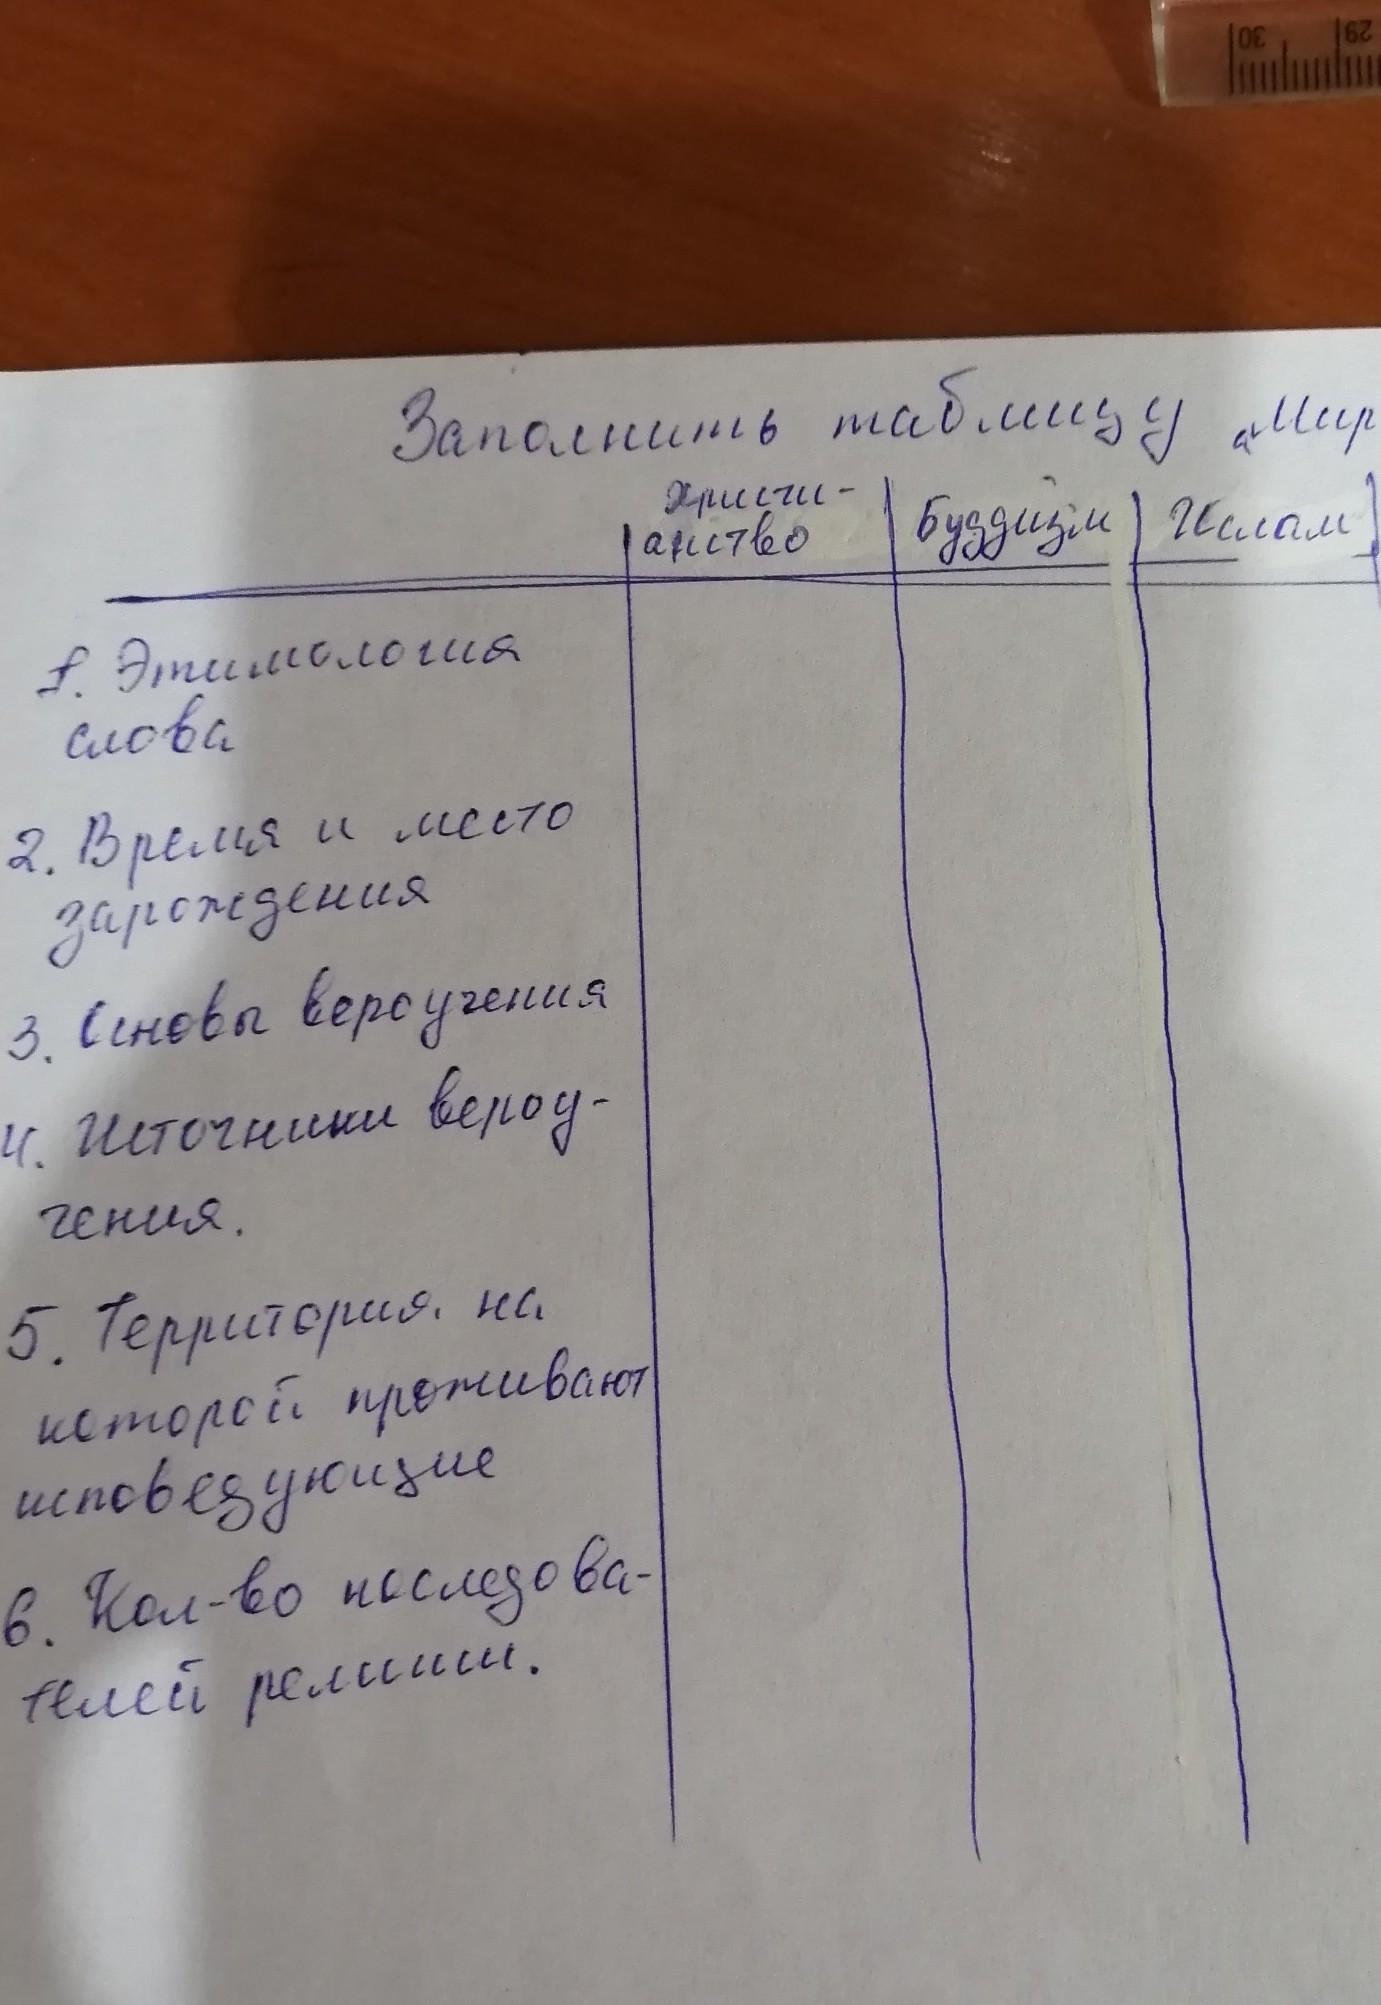 30 29
Заполнить таблицу „Мир
христи-
анство
Буддизм
Ислам
1. Этимология
слова
2. Время и место
зарождения
3. Основы вероучения
4. Источники вероу-
чения.
5. Территория. на
которой проживают
исповедующие
6. Кол-во последова-
телей религии.